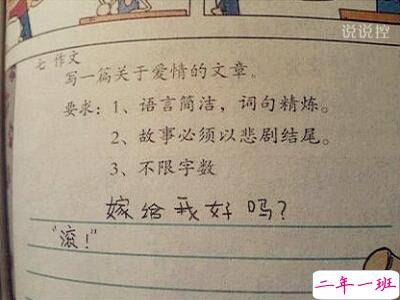 说说控
七 作文
写一篇关于爱情的文章。
要求：1、语言简洁，词句精炼。
2、故事必须以悲剧结尾。
3、不限字数
嫁给我好吗？
“滚！”
二年一班